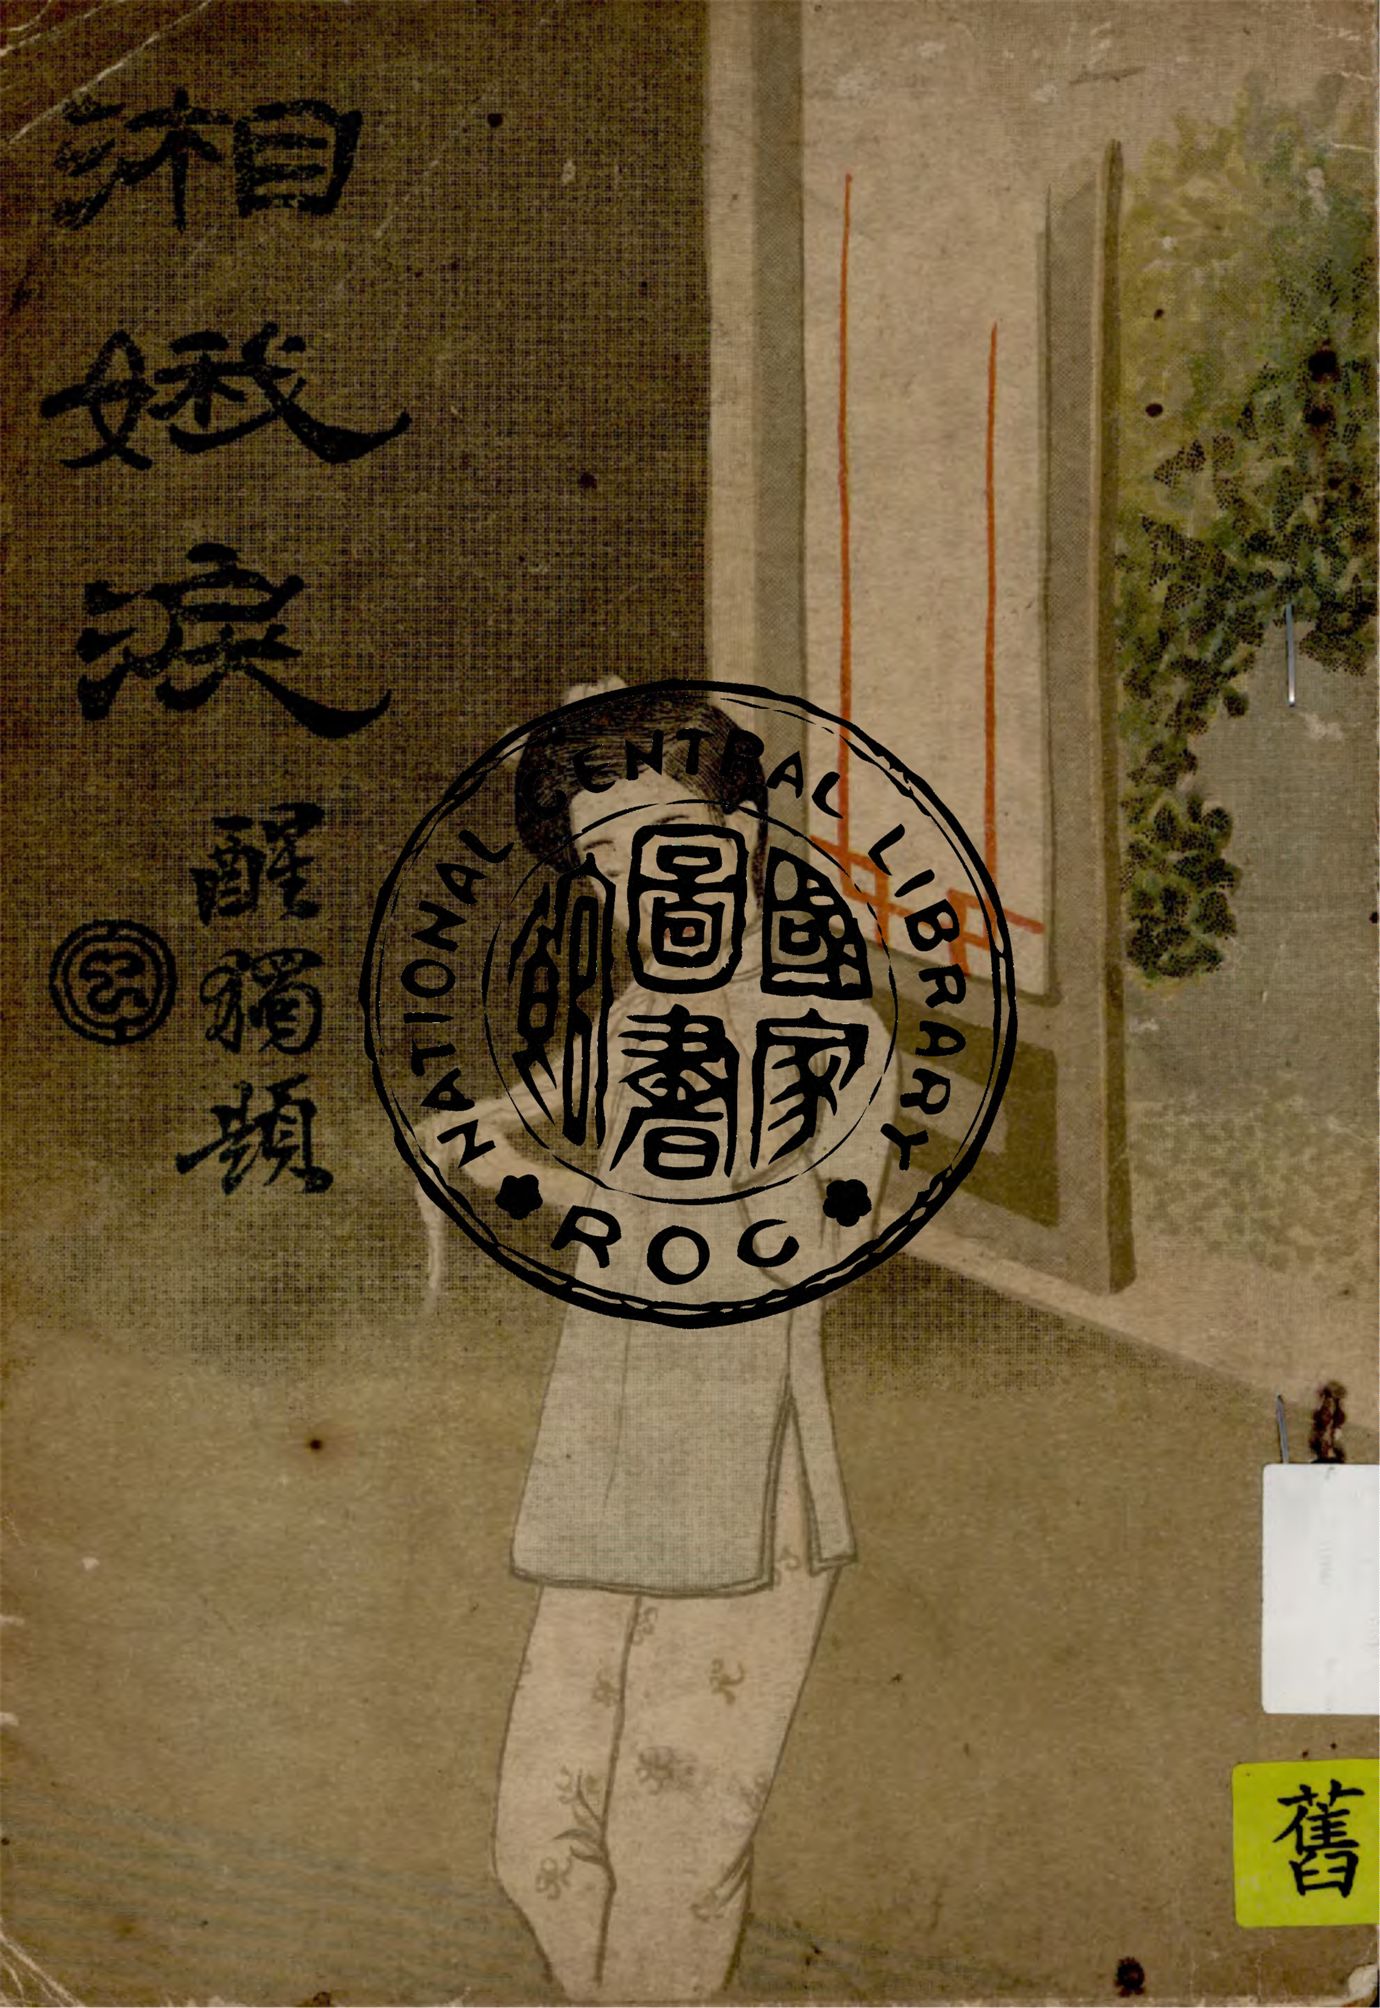 湘娥淚
醒獨題
NATIONAL CENTRAL LIBRARY
ROC
國家
圖書
館
舊